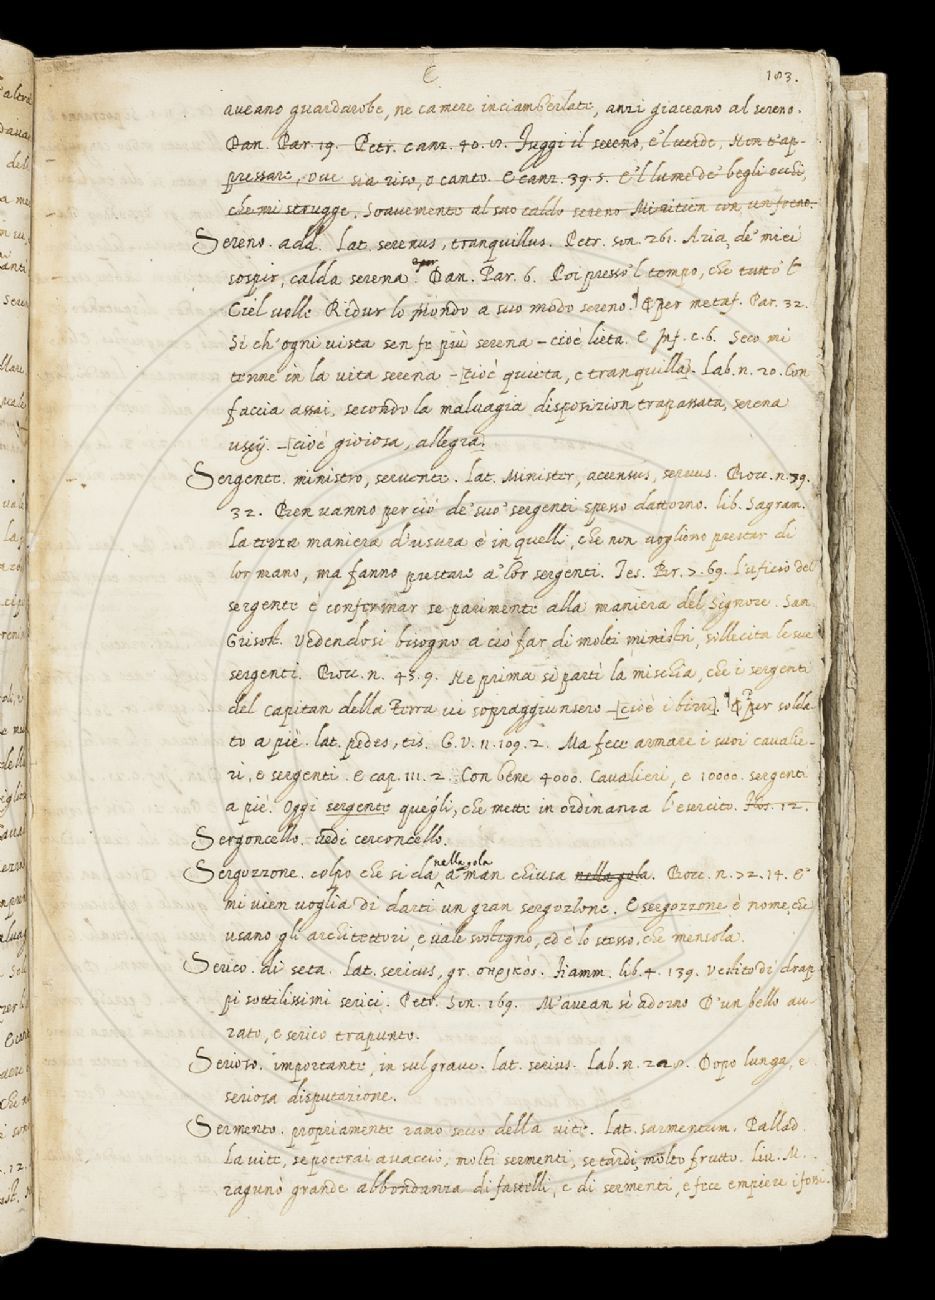 E
103.
aueano guardarobe, ne camere inciamberlate, anzi giaceano al sereno.
Dan. Par. 19. Petr. canz. 40. Fuggi il sereno, e'l uerde, Non t'ap-
pressare, oue sia riso, o canto. E canz. 39. 5. E'l lume de' begli occhi,
che mi strugge, Soauemente al suo caldo sereno Mi ritien con un freno.
Sereno. add. lat. serenus, tranquillus. Petr. son. 261. Aria de' miei
sospir, calda serena. Dan. Par. 6. Poi presso'l tempo, che tutto'l
Ciel uolle Ridur lo mondo a suo modo sereno. ¶ per metaf. Par. 32.
Si ch'ogni uista sen fe più serena - cioè lieta. E Inf. c. 6. Seco mi
tenne in la uita serena - [cioè quieta, e tranquilla]. Lab. n. 20. Con
faccia assai, secondo la maluagia disposizion trapassata, serena
uscij. - [cioè gioiosa, allegra].
Sergente. ministro, seruente. lat. Minister, accensus, seruus. Bocc. n. 79.
32. Ben uanno perciò de' suo' sergenti spesso dattorno. lib. Sagram.
La terza maniera d'usura è in quelli, che non uogliono prestar di
lor mano, ma fanno prestare a' lor sergenti. Tes. Br. 7. 69. l'uficio del
sergente è confermar se parimente alla maniera del Signore. San
Grisost. Vedendosi bisogno a ciò far di molti ministri, sollecita le sue
sergenti. Bocc. n. 43. 9. Ne prima si partì la mischia, che i sergenti
del capitan della Terra ui sopraggiunsero - [cioè i birri]. ¶ per solda
to a piè. lat. pedes, tis. G. V. 11. 109. 2. Ma fece armare i suoi caualie-
ri, e sergenti. E cap. 111. 2. Con bene 4000. Caualieri, e 10000. sergenti
a piè. Oggi sergente quegli, che mette in ordinanza l'esercito.
Sergoncello. vedi cerconcello.
Sergozzone. colpo che si da nella gola a man chiusa nella gola. Bocc. n. 72. 14. E
mi uien uoglia di darti un gran sergozzone. E sergozzone è nome, che
usano gli architettori, e uale sostegno, ed è lo stesso, che mensola.
Serico. di seta. lat. sericus, gr. σηρικός. Fiamm. lib. 4. 139. Vestito di drap
pi sottilissimi serici. Petr. Son. 169. M'auean sì adorno D'un bello au-
rato, e serico trapunto.
Serioso. importante, in sul graue. lat. serius. Lab. n. Dopo lunga, e
seriosa disputazione.
Sermento. propriamente ramo secco della uite. lat. sarmentum. Pallad.
La uite, se poterai auaccio, molti sermenti, se tardi, molto frutto. Liu. M.
ragunò grande abbondanza di fastelli, e di sermenti, e fece empiere i fossi